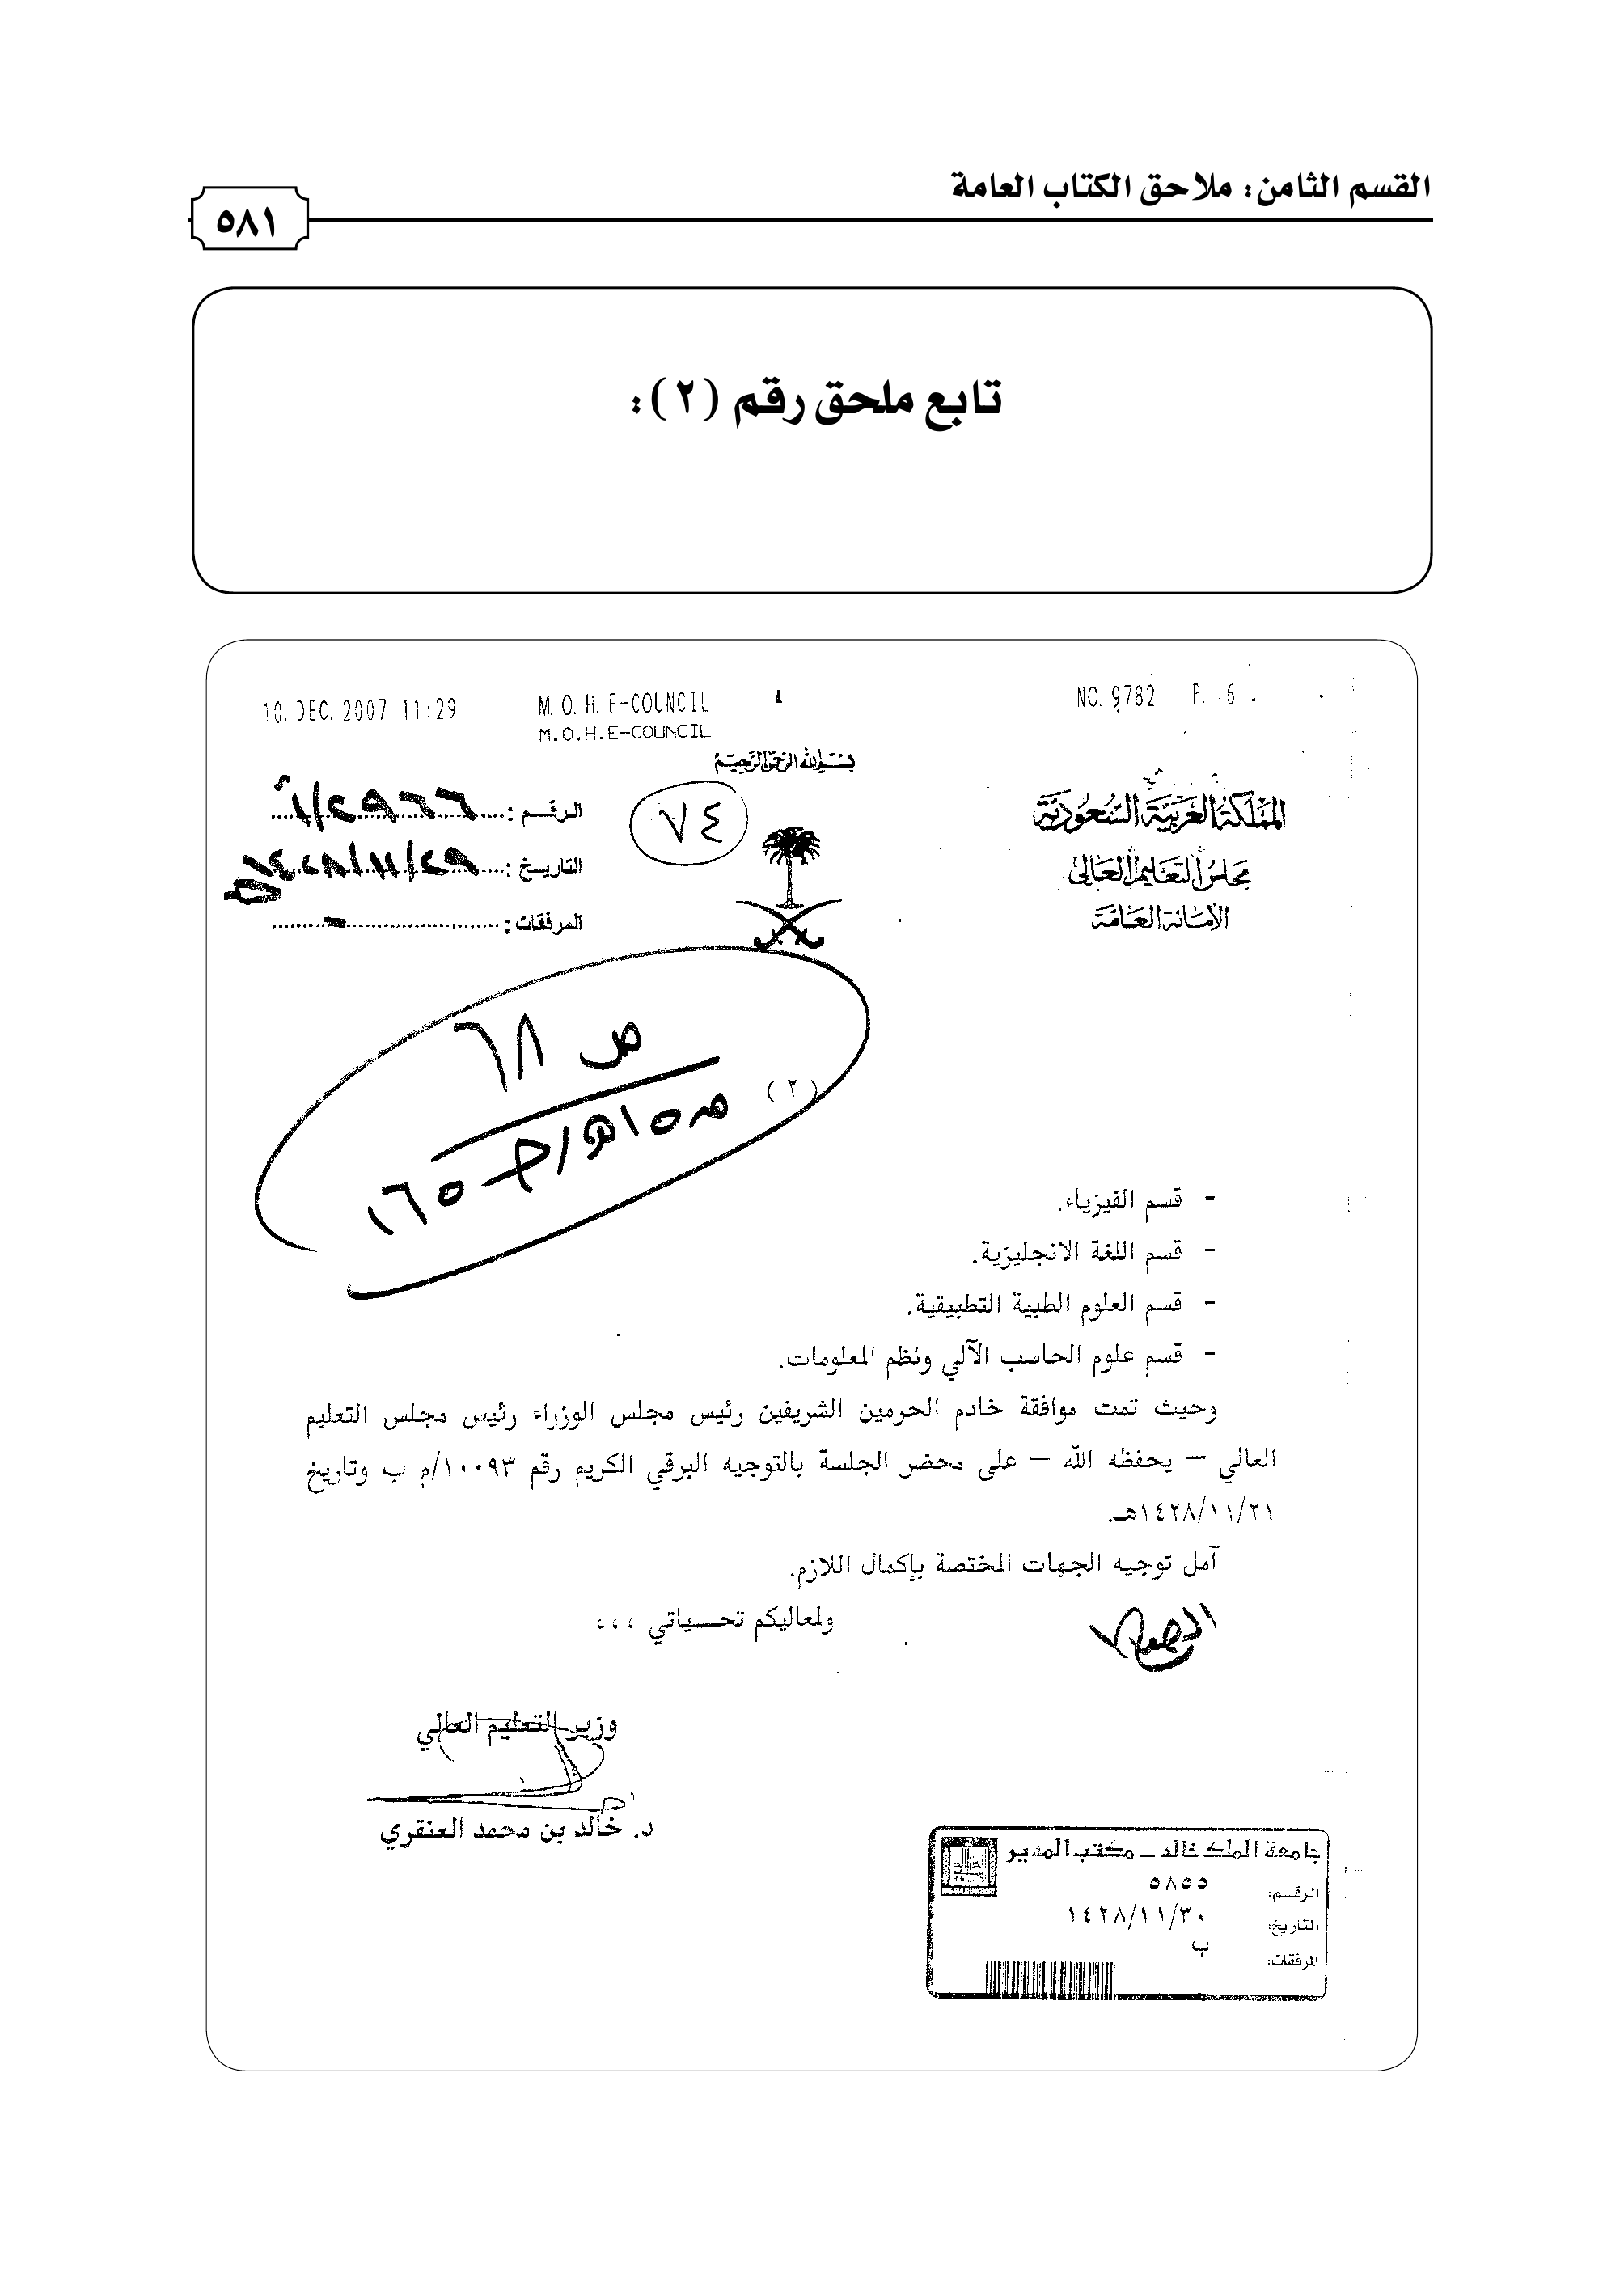 القسم الثامن: ملاحق الكتاب العامة
٥٨١
تابع ملحق رقم (٢):
10. DEC. 2007 11:29 M. O. H. E-COUNCIL NO. 9782 P. 6
M.O.H.E-COUNCIL
بسم الله الرحمن الرحيم
المملكة العربية السعودية
مجلس التعليم العالي
الأمانة العامة
٧٤
الرقم:
التاريخ:
المرفقات:
ص ٦٨
(٢)
- قسم الفيزياء.
- قسم اللغة الانجليزية.
- قسم العلوم الطبية التطبيقية.
- قسم علوم الحاسب الآلي ونظم المعلومات.
وحيث تمت موافقة خادم الحرمين الشريفين رئيس مجلس الوزراء رئيس مجلس التعليم
العالي – يحفظه الله – على محضر الجلسة بالتوجيه البرقي الكريم رقم ١٠٠٩٣/م ب وتاريخ
١٤٢٨/١١/٢١هـ.
آمل توجيه الجهات المختصة بإكمال اللازم.
ولمعاليكم تحـــياتي ،،،
وزير التعليم العالي
د. خالد بن محمد العنقري
جامعة الملك خالد – مكتب المدير
الرقم: ٥٨٥٥
التاريخ: ١٤٢٨/١١/٣٠
المرفقات: ب